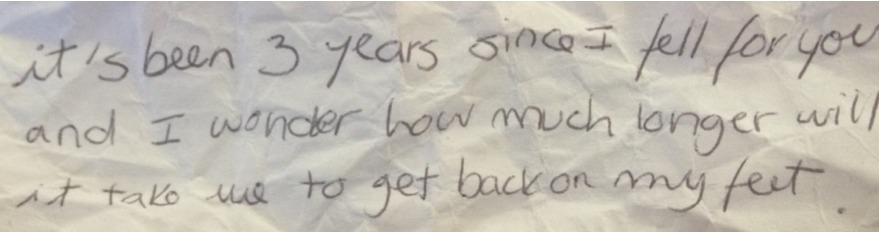 it's been 3 years since I fell for you
and I wonder how much longer will
it take me to get back on my feet.